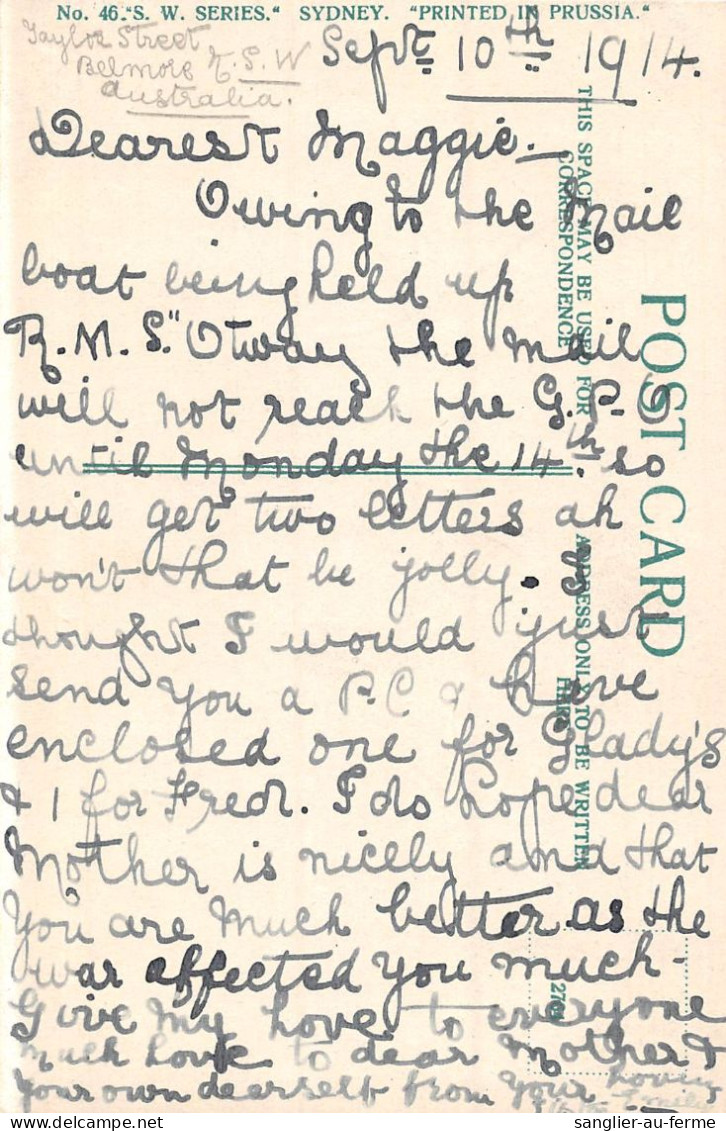 No. 46. "S. W. SERIES." SYDNEY. "PRINTED IN PRUSSIA."
Taylor Street
Belmore N.S.W
Australia.
Sept 10th 1914.
Dearest Maggie —
Owing to the Mail
boat being held up
R.M.S. "Otway the mail
will not reach the G.P.O
until Monday the 14th. so
will get two letters ah
won't that be jolly. I
thought I would just
send you a P.C & have
enclosed one for Glady's
& 1 for Fred. I do hope dear
Mother is nicely and that
you are much better as the
war affected you much -
Give my love to everyone
much love to dear Mother &
your own dearself from your loving
Emily
POST CARD
THIS SPACE MAY BE USED FOR
CORRESPONDENCE
ADDRESS ONLY TO BE WRITTEN
HERE
sanglier-au-ferme